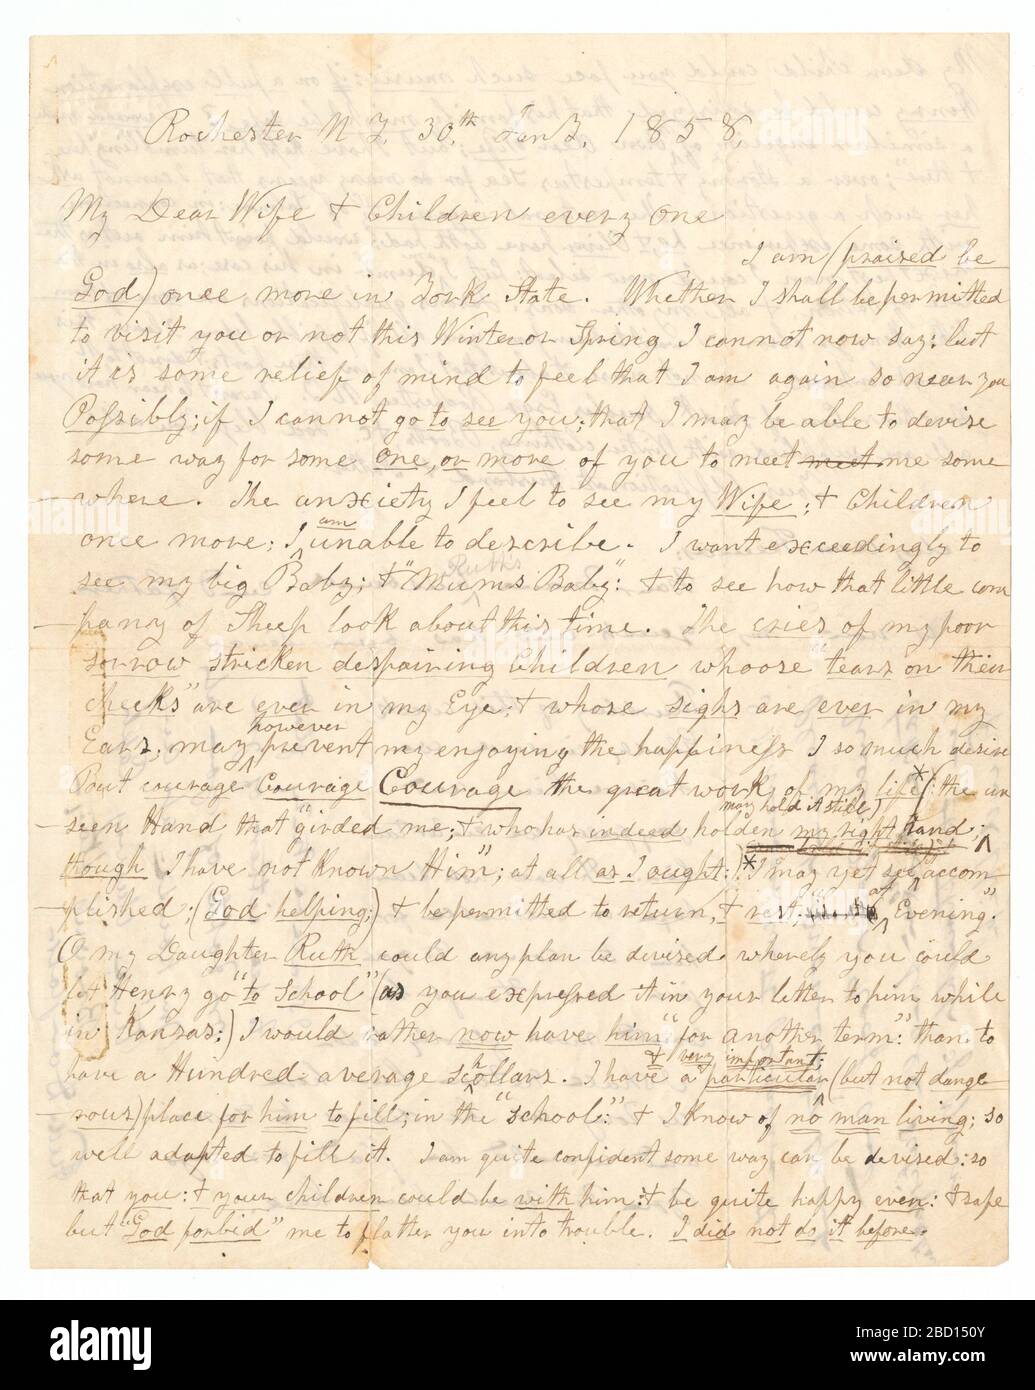 Rochester N Y, 30th Jany, 1858,
My Dear Wife & Children every one
I am (praised be
God) once more in York State. Whether I shall be permitted
to visit you or not this Winter or Spring I cannot now say; but
it is some relief of mind to feel that I am again so near you
Possibly; if I cannot go to see you; that I may be able to devise
some way for some one, or more of you to meet meet me some
where. The anxiety I feel to see my Wife; & Children
once more; I am unable to describe. I want exceedingly to
see my big Baby; & "Ruths Baby": & to see how that little com
pany of Sheep look about this time. The cries of my poor
sorrow stricken despairing Children whoose "tears on their
cheeks" are ever in my Eye; & whose sighs are ever in my
Ears; may however prevent my enjoying the happiness I so much desire
But courage Courage Courage the great work of my life* (: the un
seen Hand that "girded me; & who has indeed holden my right hand; may hold it still)
though I have not known Him"; at all as I ought:)* I may yet see accom
plished; (God helping;) & be permitted to return, & "rest at Evening".
O my Daughter Ruth could any plan be devised whereby you could
let Henry go "to School" (as you expressed it in your letter to him while
in Kansas:) I would rather now have him "for another term:" than to
have a Hundred average schollars. I have a particular & very important; (but not dange
rous) place for him to fill; in the "school:" & I know of no man living; so
well adapted to fill it. I am quite confident some way can be devised: so
that you: & your children could be with him: & be quite happy even: & safe
but "God forbid" me to flatter you into trouble. I did not do it before.
alamy
Image ID: 2BD150Y
www.alamy.com